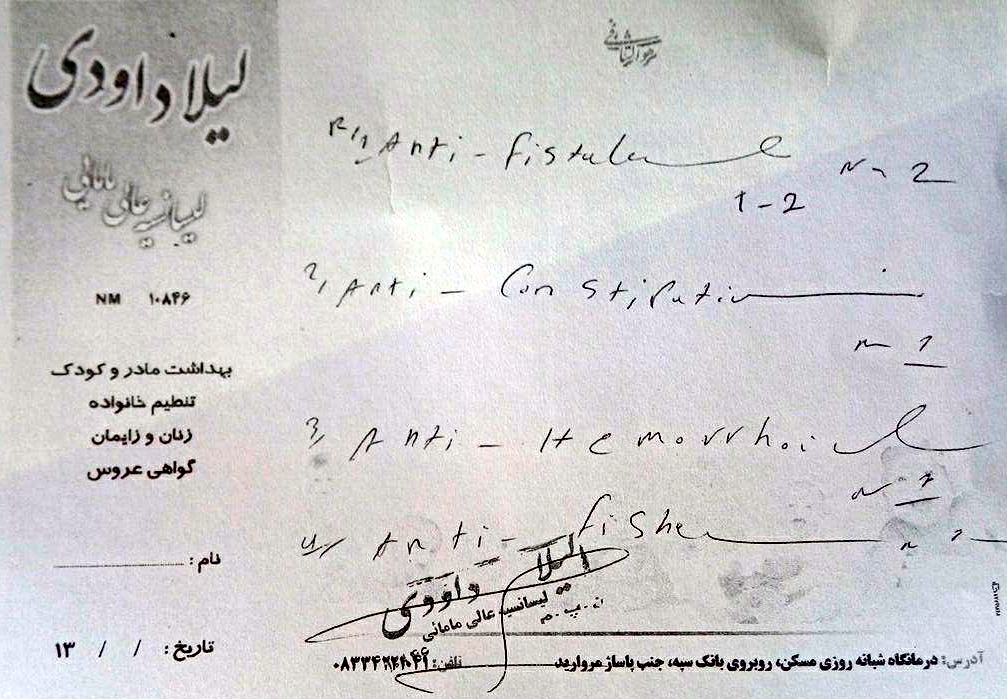 هوالشافی
لیلا داودی
لیسانسیه عالی مامایی
NM ۱۰۸۴۶
بهداشت مادر و کودک
تنظیم خانواده
زنان و زایمان
گواهی عروس
نام :
تاریخ : / / ۱۳
R/1 Anti - fistula N = 2
1 - 2
2/ Anti - Constipation
N 1
3/ Anti - Hemorrhoid
N 1
4/ Anti - fisher N 1
لیلا داودی
لیسانسیه عالی مامائی
ن . پ . م
تلفن:
آدرس: درمانگاه شبانه روزی مسکن، روبروی بانک سپه، جنب پاساژ مروارید